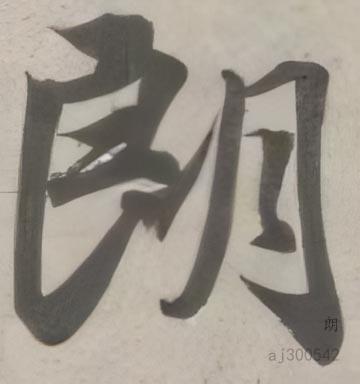 朗
朗
aj300542